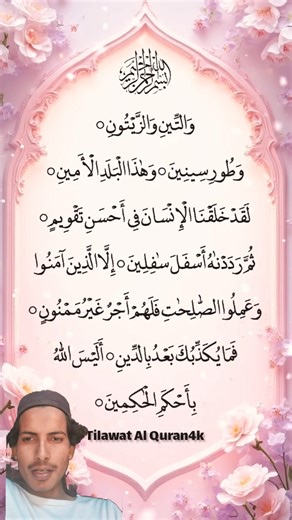 بسم الله الرحمن الرحيم
وَالتِّينِ وَالزَّيْتُونِ ○
وَطُورِ سِينِينَ ○ وَهٰذَا الْبَلَدِ الْأَمِينِ ○
لَقَدْ خَلَقْنَا الْإِنْسَانَ فِي أَحْسَنِ تَقْوِيمٍ ○
ثُمَّ رَدَدْنٰهُ أَسْفَلَ سٰفِلِينَ ○ إِلَّا الَّذِينَ آمَنُوا
وَعَمِلُوا الصّٰلِحٰتِ فَلَهُمْ أَجْرٌ غَيْرُ مَمْنُونٍ ○
فَمَا يُكَذِّبُكَ بَعْدُ بِالدِّينِ ○ أَلَيْسَ اللّٰهُ
بِأَحْكَمِ الْحٰكِمِينَ ○
Tilawat Al Quran4k